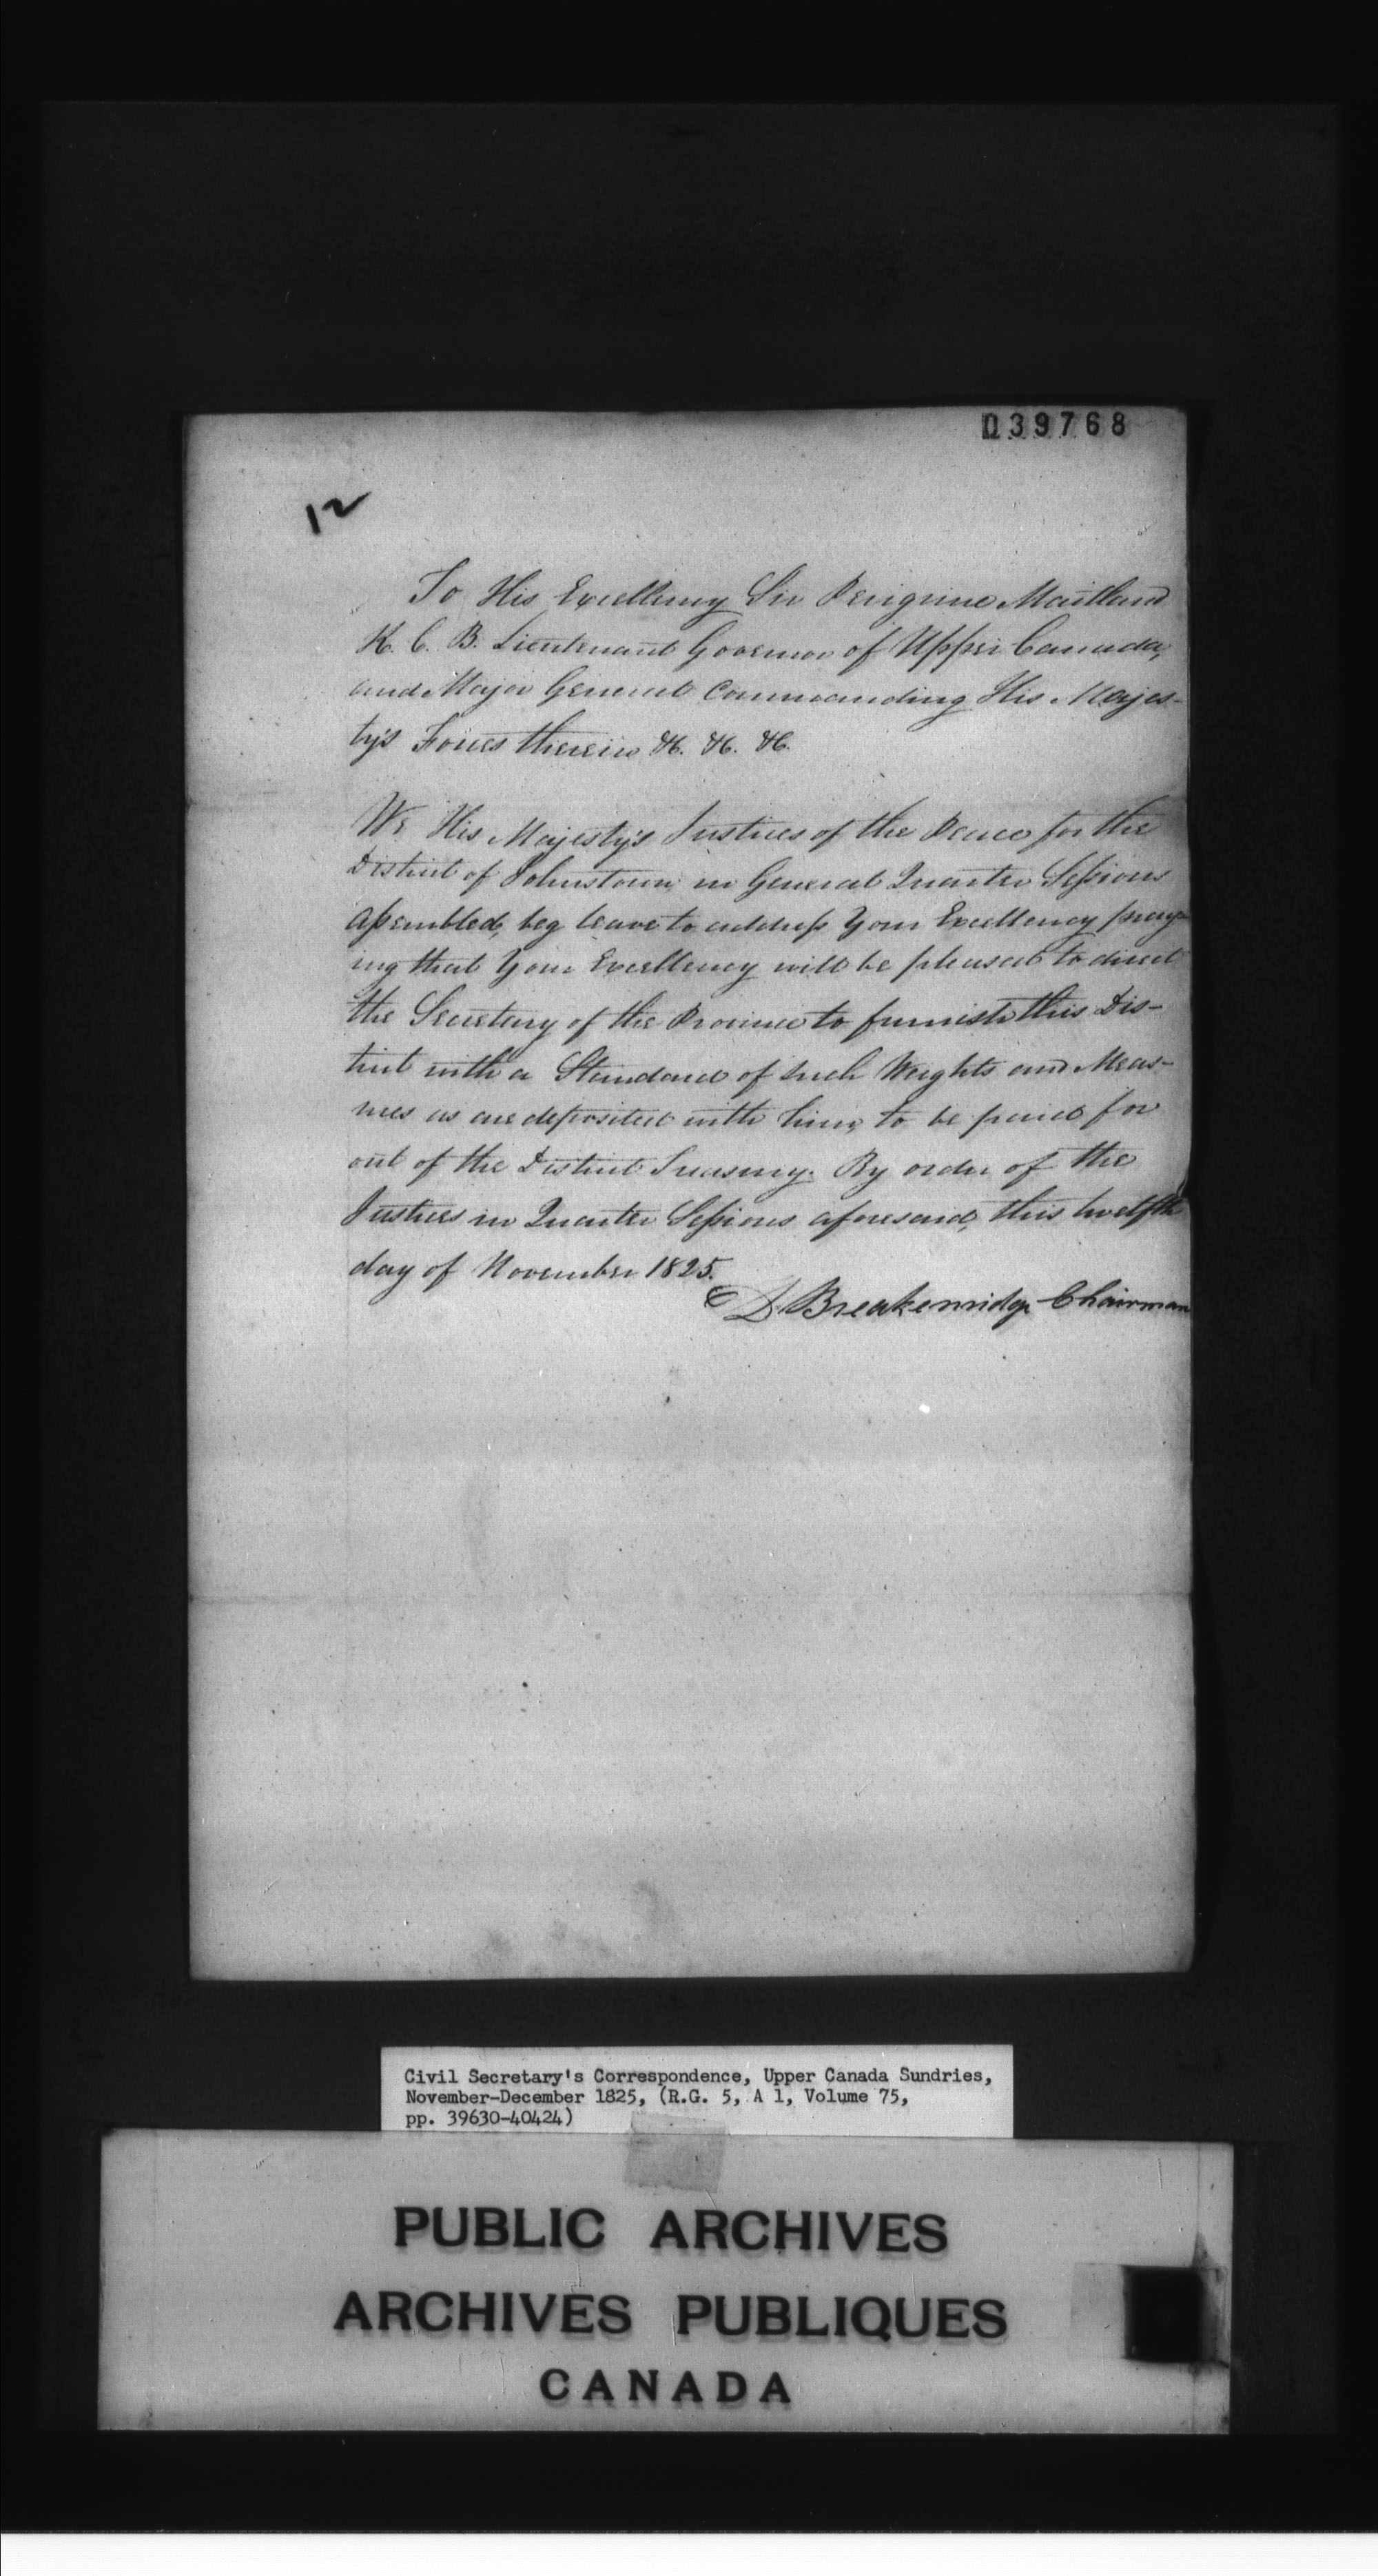 039768
12
To His Excellency Sir Peregrine Maitland
K. C. B. Lieutenant Governor of Upper Canada,
and Major General Commanding His Majes-
ty's Forces therein &c. &c. &c.
We His Majesty's Justices of the Peace for the
District of Johnstown in General Quarter Sessions
assembled, beg leave to address Your Excellency pray-
ing that Your Excellency will be pleased to direct
the Secretary of the Province to furnish this Dis-
trict with a Standard of such Weights and Meas-
ures as are deposited with him, to be paid for
out of the District Treasury. By order of the
Justices in Quarter Sessions aforesaid, this twelfth
day of November 1825.
D Breakenridge Chairman
Civil Secretary's Correspondence, Upper Canada Sundries,
November-December 1825, (R.G. 5, A 1, Volume 75,
pp. 39630-40424)
PUBLIC ARCHIVES
ARCHIVES PUBLIQUES
CANADA